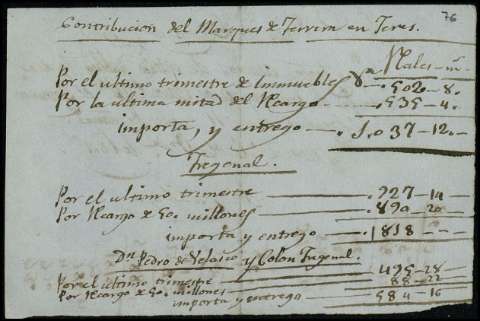 76
Contribucion del Marques de Ferrera en Feres.
Rales - ms
Por el ultimo trimestre de Immuebles Rn - 502 - 8.
Por la ultima mitad del Recargo - 535 - 4.
importa, y entrego - 1.037 - 12.
Fregenal.
Por el ultimo trimestre 927 - 14
Por Recargo de 50. millones 890 - 20
importa y entrego - 1818 - -
Dn. Pedro de Velasco y Colon Fregenal.
Por el ultimo trimestre 495 - 28
Por Recargo de 50. millones 88 - 22
importa y entrego 584 - 16